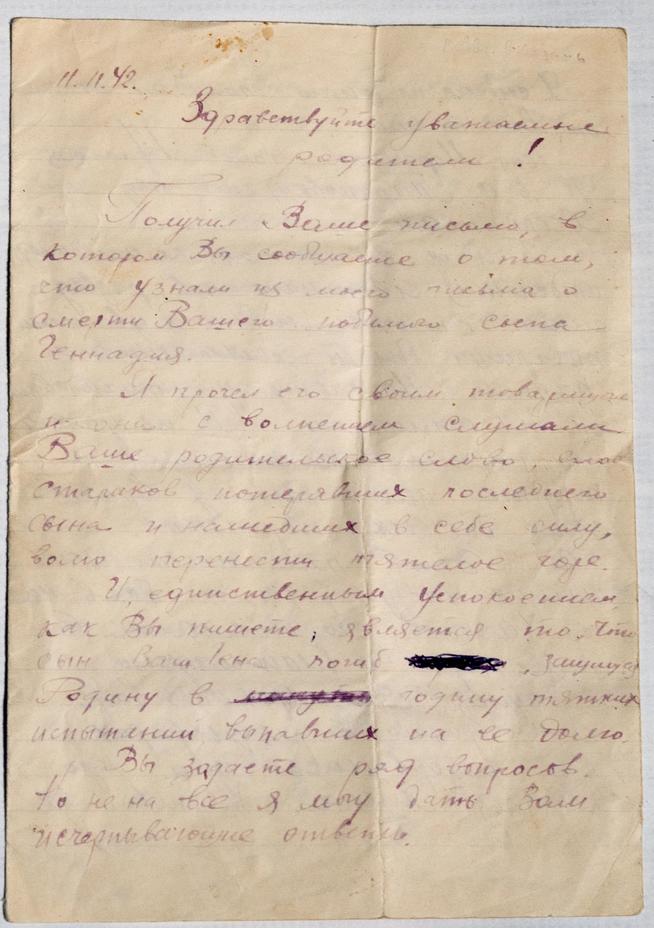 11.11.42.
Здравствуйте уважаемые
родители!
Получил Ваше письмо, в
котором Вы сообщаете о том,
что узнали из моего письма о
смерти Вашего любимого сына
Геннадия.
Я прочел его своим товарищам
и они с волнением слушали
Ваше родительское слово, слово
стариков потерявших последнего
сына и нашедших в себе силу,
волю перенести тяжелое горе.
И, единственным успокоением,
как Вы пишете, является то, что
сын Ваш Гена погиб, защищая
Родину в годину тяжких
испытаний выпавших на ее долю.
Вы задаете ряд вопросов.
Но не на все я могу дать Вам
исчерпывающие ответы.